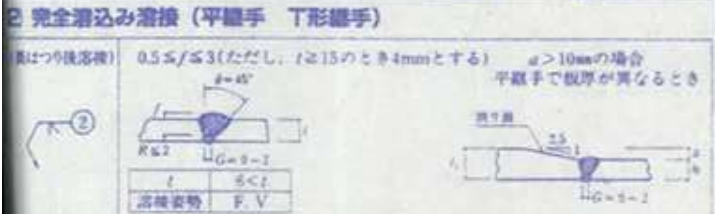 2 完全溶込み溶接（平継手 T形継手）
(裏はつり後溶接) 0.5≦f≦3(ただし、t≧15のとき4mmとする) a>10mmの場合
平継手で板厚が異なるとき
θ=45°
②
2.5
1
R≦2
G=0~2
t 6<t
溶接姿勢 F. V
G=0~2